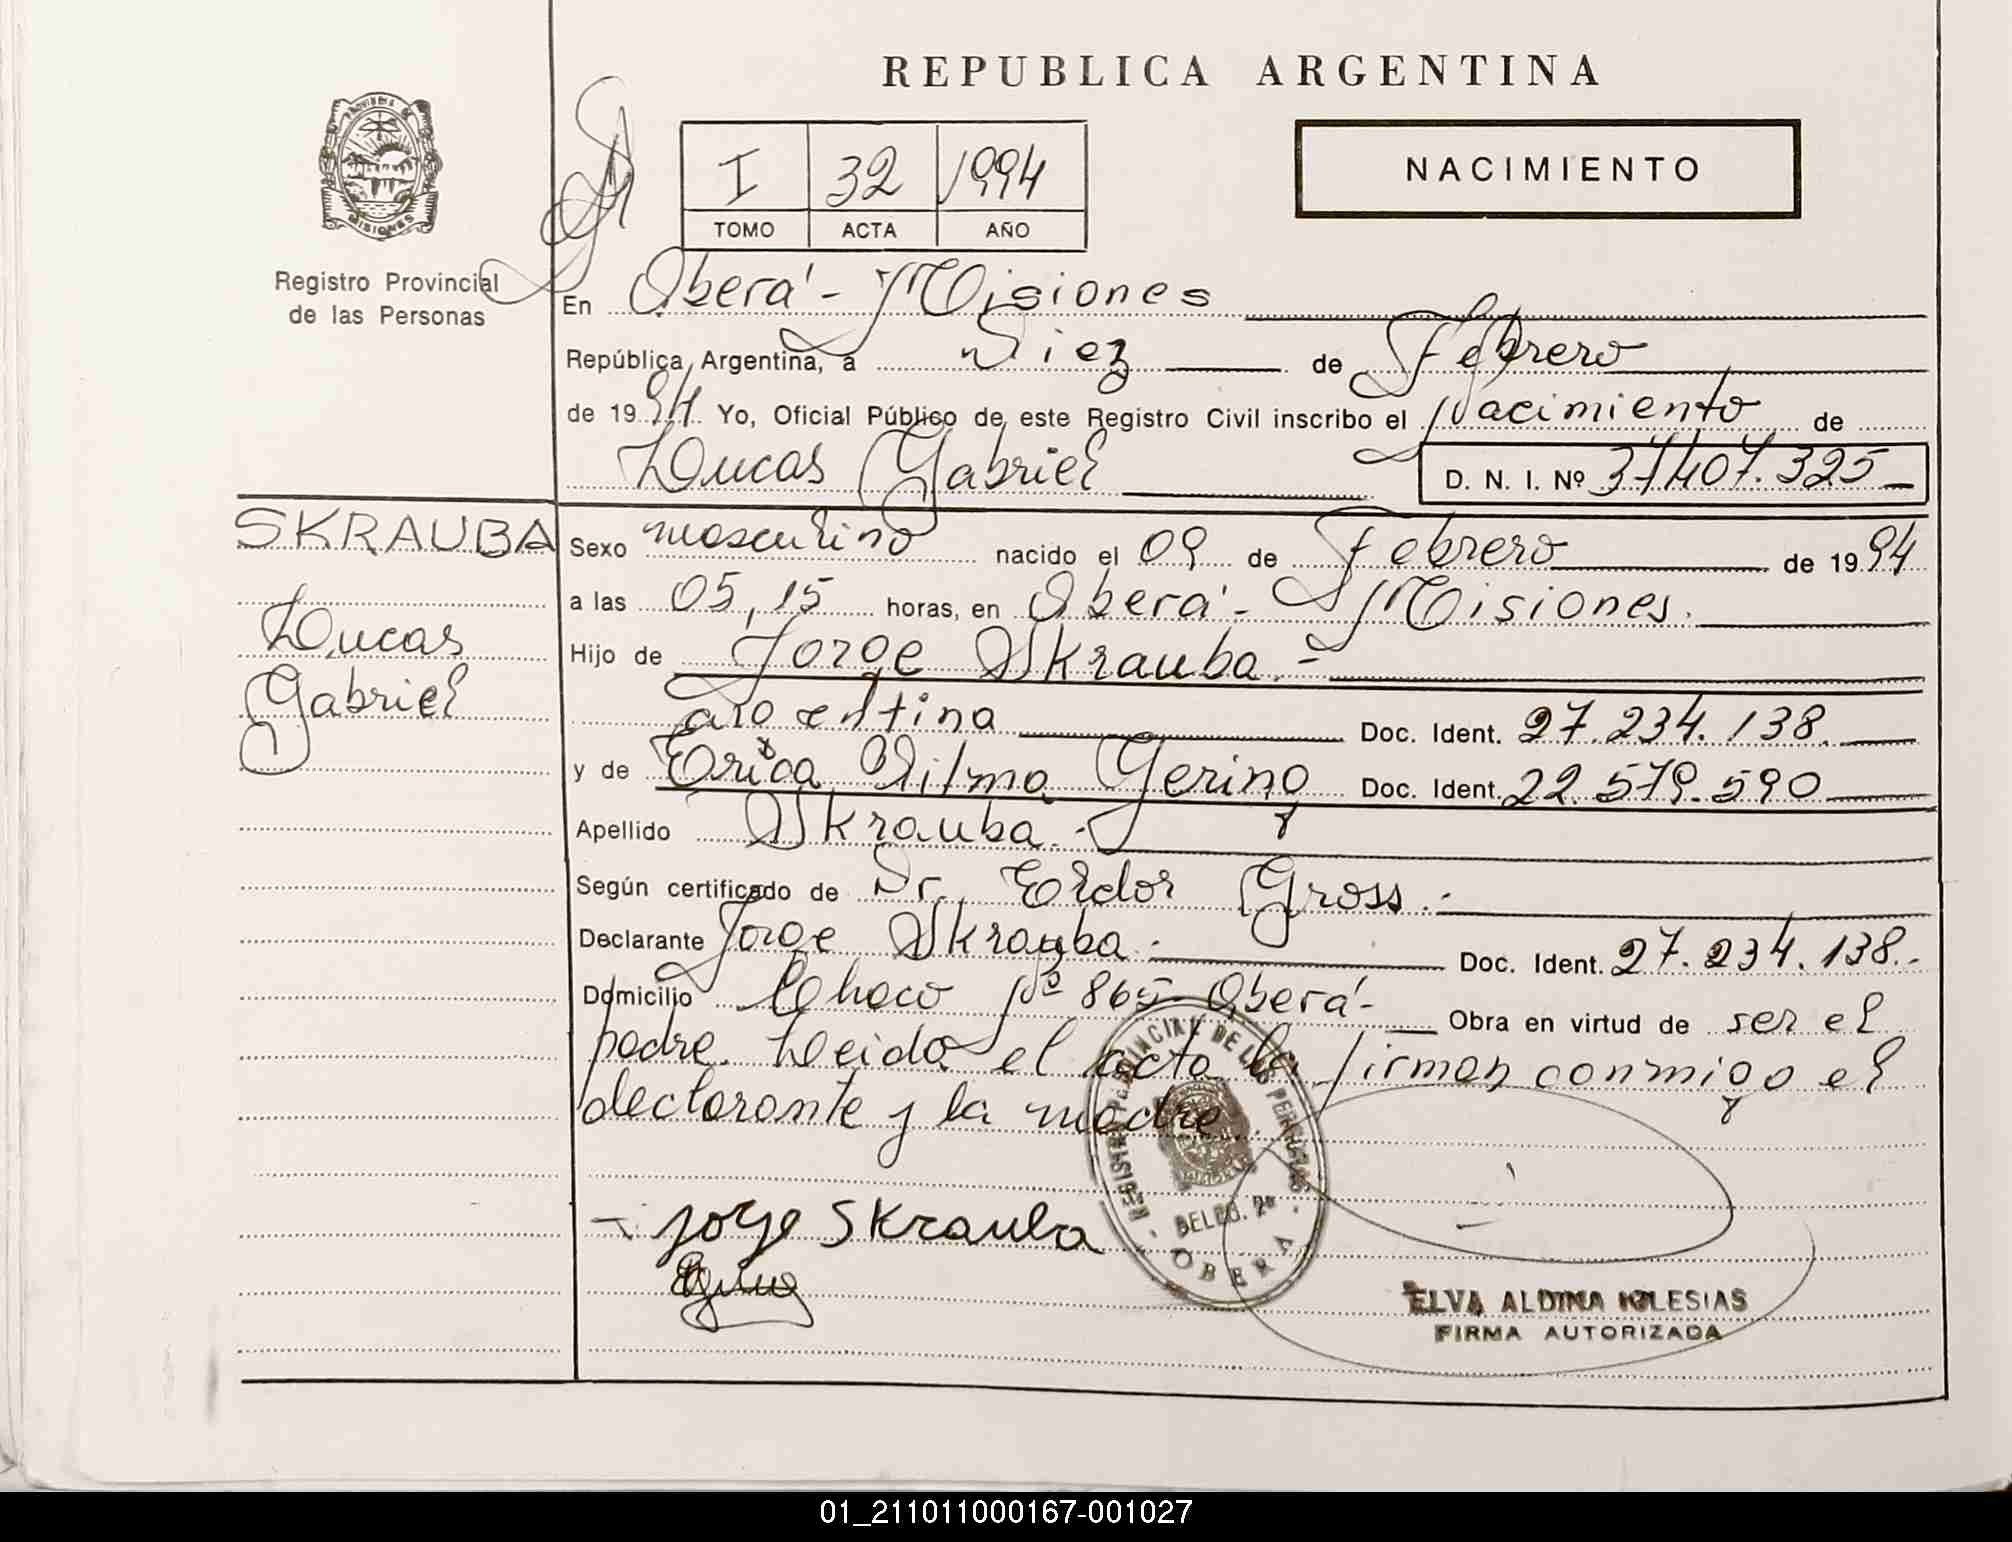 REPUBLICA ARGENTINA
I 32 1994
TOMO ACTA AÑO
NACIMIENTO
Registro Provincial
de las Personas
En Oberá - Misiones
República Argentina, a Diez de Febrero
de 1994 Yo, Oficial Público de este Registro Civil inscribo el Nacimiento de
Lucas Gabriel D. N. I. Nº 37407.325
SKRAUBA
Lucas
Gabriel
Sexo masculino nacido el 09 de Febrero de 1994
a las 05,15 horas, en Oberá - Misiones.
Hijo de Jorge Skrauba.-
argentina Doc. Ident. 27.234.138.
y de Erica Vilma Gering Doc. Ident. 22.579.590
Apellido Skrauba.-
Según certificado de Dr. Eldor Gross.-
Declarante Jorge Skrauba.- Doc. Ident. 27.234.138.-
Domicilio Chaco Nº 865 Oberá- Obra en virtud de ser el
padre. Leida el acta la firman conmigo el
declarante y la madre.
REGISTRO PROVINCIAL DE LAS PERSONAS
DELEG. 2ª
OBERA
Jorge Skrauba
ELVA ALDINA IGLESIAS
FIRMA AUTORIZADA
01_211011000167-001027